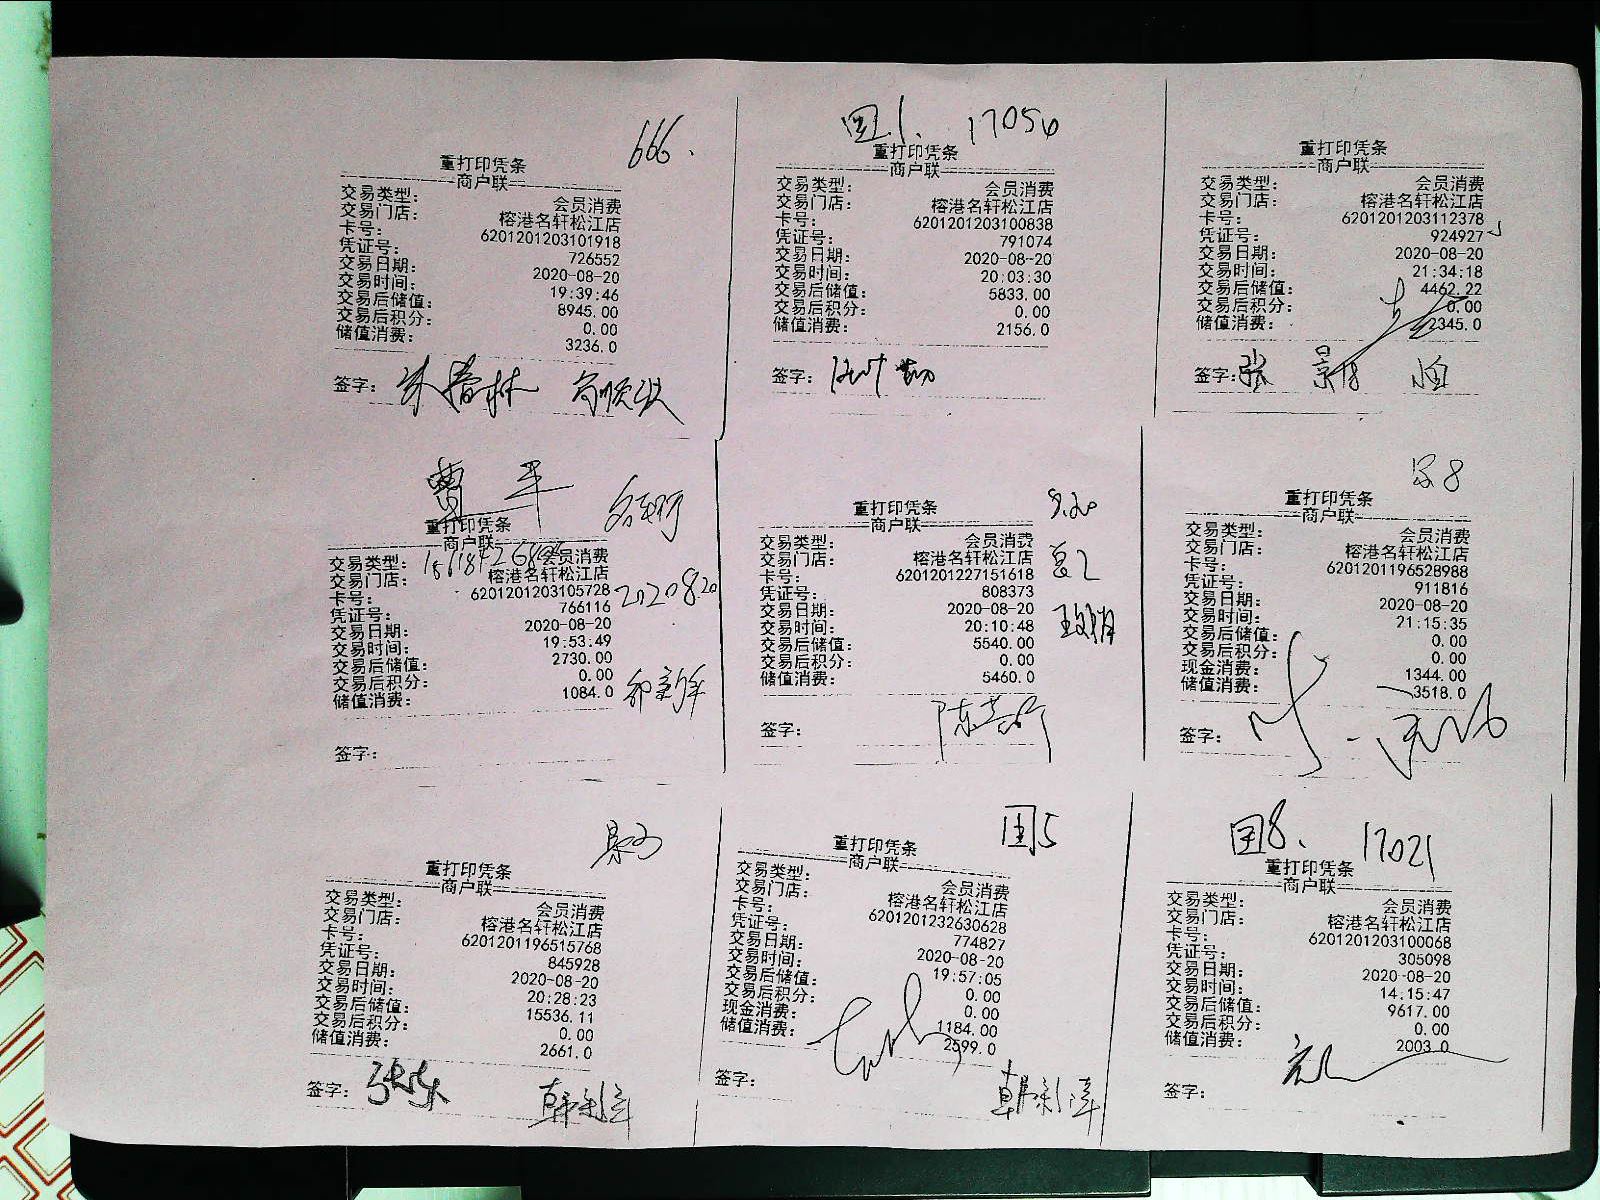 666.
重打印凭条
商户联
交易类型： 会员消费
交易门店： 榕港名轩松江店
卡号： 6201201203101918
凭证号： 726552
交易日期： 2020-08-20
交易时间： 19:39:46
交易后储值： 8945.00
交易后积分： 0.00
储值消费： 3236.0
签字： 朱春林
国1. 17054
重打印凭条
商户联
交易类型： 会员消费
交易门店： 榕港名轩松江店
卡号： 6201201203100838
凭证号： 791074
交易日期： 2020-08-20
交易时间： 20:03:30
交易后储值： 5833.00
交易后积分： 0.00
储值消费： 2156.0
签字：
重打印凭条
商户联
交易类型： 会员消费
交易门店： 榕港名轩松江店
卡号： 6201201203112378
凭证号： 924927
交易日期： 2020-08-20
交易时间： 21:34:18
交易后储值： 4462.22
交易后积分： 0.00
储值消费： 2345.0
签字： 张
曹 平
重打印凭条
商户联
交易类型： 会员消费
交易门店： 榕港名轩松江店
卡号： 6201201203105728
2020 8.20
凭证号： 766116
交易日期： 2020-08-20
交易时间： 19:53:49
交易后储值： 2730.00
交易后积分： 0.00
储值消费： 1084.0
签字：
8.20
重打印凭条
商户联
交易类型： 会员消费
交易门店： 榕港名轩松江店
卡号： 6201201227151618
凭证号： 808373
交易日期： 2020-08-20
交易时间： 20:10:48
交易后储值： 5540.00
交易后积分： 0.00
储值消费： 5460.0
签字：
8
重打印凭条
商户联
交易类型： 会员消费
交易门店： 榕港名轩松江店
卡号： 6201201196528988
凭证号： 911816
交易日期： 2020-08-20
交易时间： 21:15:35
交易后储值： 0.00
交易后积分： 0.00
现金消费： 1344.00
储值消费： 3518.0
签字：
重打印凭条
商户联
交易类型： 会员消费
交易门店： 榕港名轩松江店
卡号： 6201201196515768
凭证号： 845928
交易日期： 2020-08-20
交易时间： 20:28:23
交易后储值： 15536.11
交易后积分： 0.00
储值消费： 2661.0
签字：
国5
重打印凭条
商户联
交易类型： 会员消费
交易门店： 榕港名轩松江店
卡号： 6201201232630628
凭证号： 774827
交易日期： 2020-08-20
交易时间： 19:57:05
交易后储值： 0.00
交易后积分： 0.00
现金消费： 1184.00
储值消费： 2599.0
签字：
国8. 17021
重打印凭条
商户联
交易类型： 会员消费
交易门店： 榕港名轩松江店
卡号： 6201201203100068
凭证号： 305098
交易日期： 2020-08-20
交易时间： 14:15:47
交易后储值： 9617.00
交易后积分： 0.00
储值消费： 2003.0
签字：